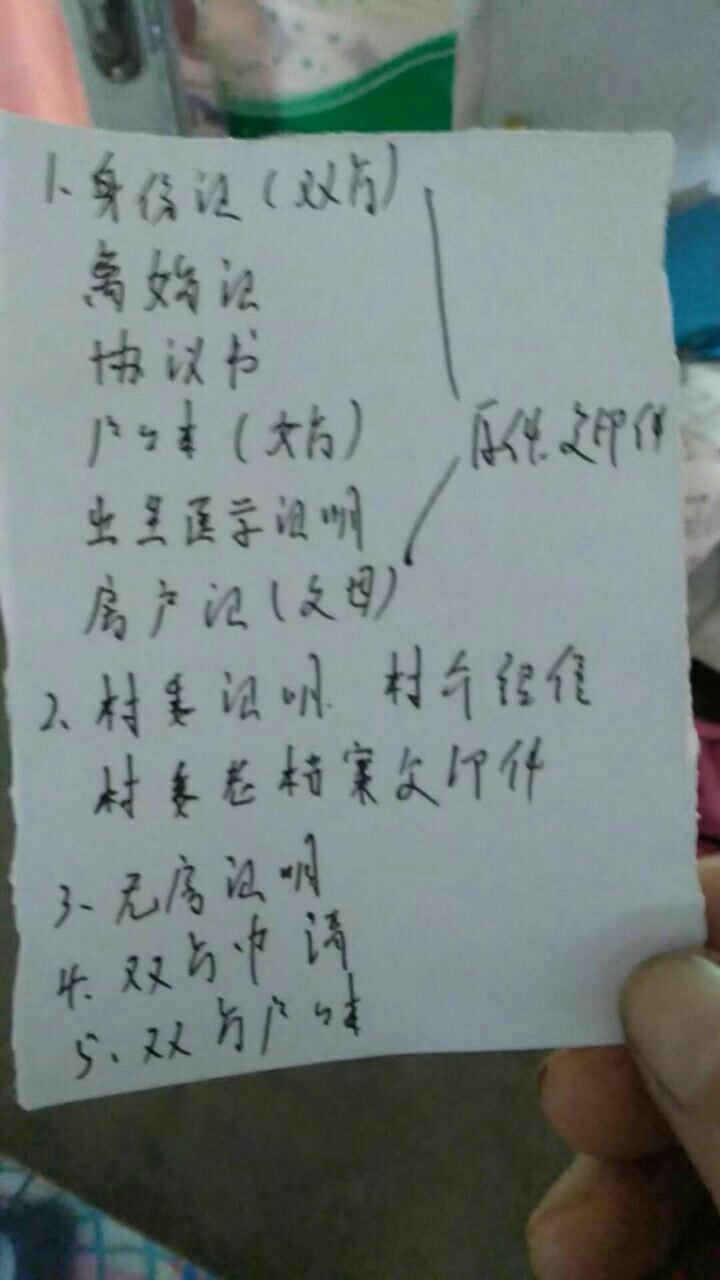 1、身份证(双方)
离婚证
协议书
户口本(女方)
原件、复印件
出生医学证明
房产证(父母)
2、村委证明、村
村委 档案复印件
3、无房证明
4、双方申请
5、双方户口本